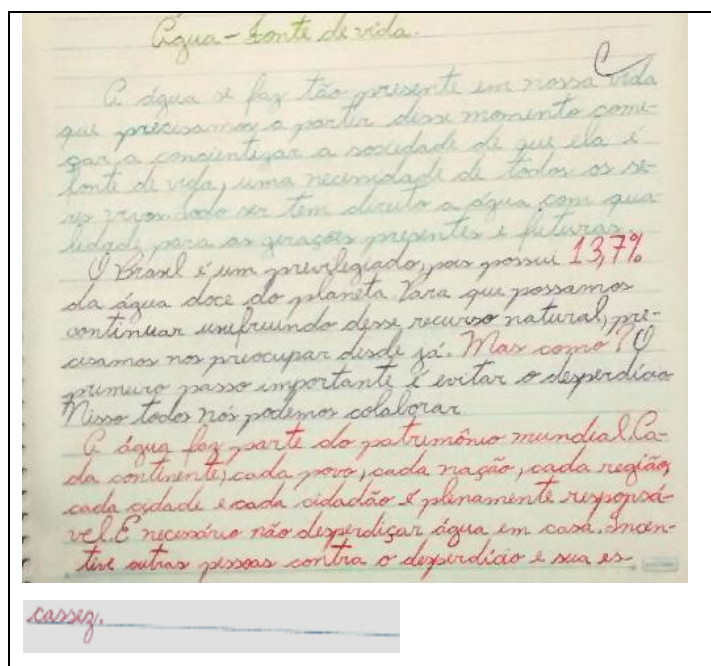 Água - fonte de vida.
A água se faz tão presente em nossa vida
que precisamos a partir desse momento come-
çar a concientizar a sociedade de que ela é
fonte de vida, uma necessidade de todos os se-
res vivos. todo ser tem direito a água com qua-
lidade para as gerações presentes e futuras.
O Brasil é um previlegiado, pois possui 13,7%
da água doce do planeta. Para que possamos
continuar usufruindo desse recurso natural, pre-
cisamos nos preocupar desde já. Mas como? O
primeiro passo importante é evitar o desperdício
Nisso todos nós podemos colaborar
A água faz parte do patrimônio mundial. Ca-
da continente, cada povo, cada nação, cada região,
cada cidade e cada cidadão é plenamente responsá-
vel. É necessário não desperdiçar água em casa. Incen-
tive outras pessoas contra o desperdício e sua es-
cassez.